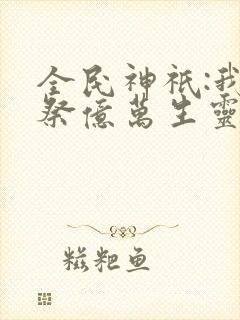 全民神祇:我
祭億萬生靈
糍粑鱼